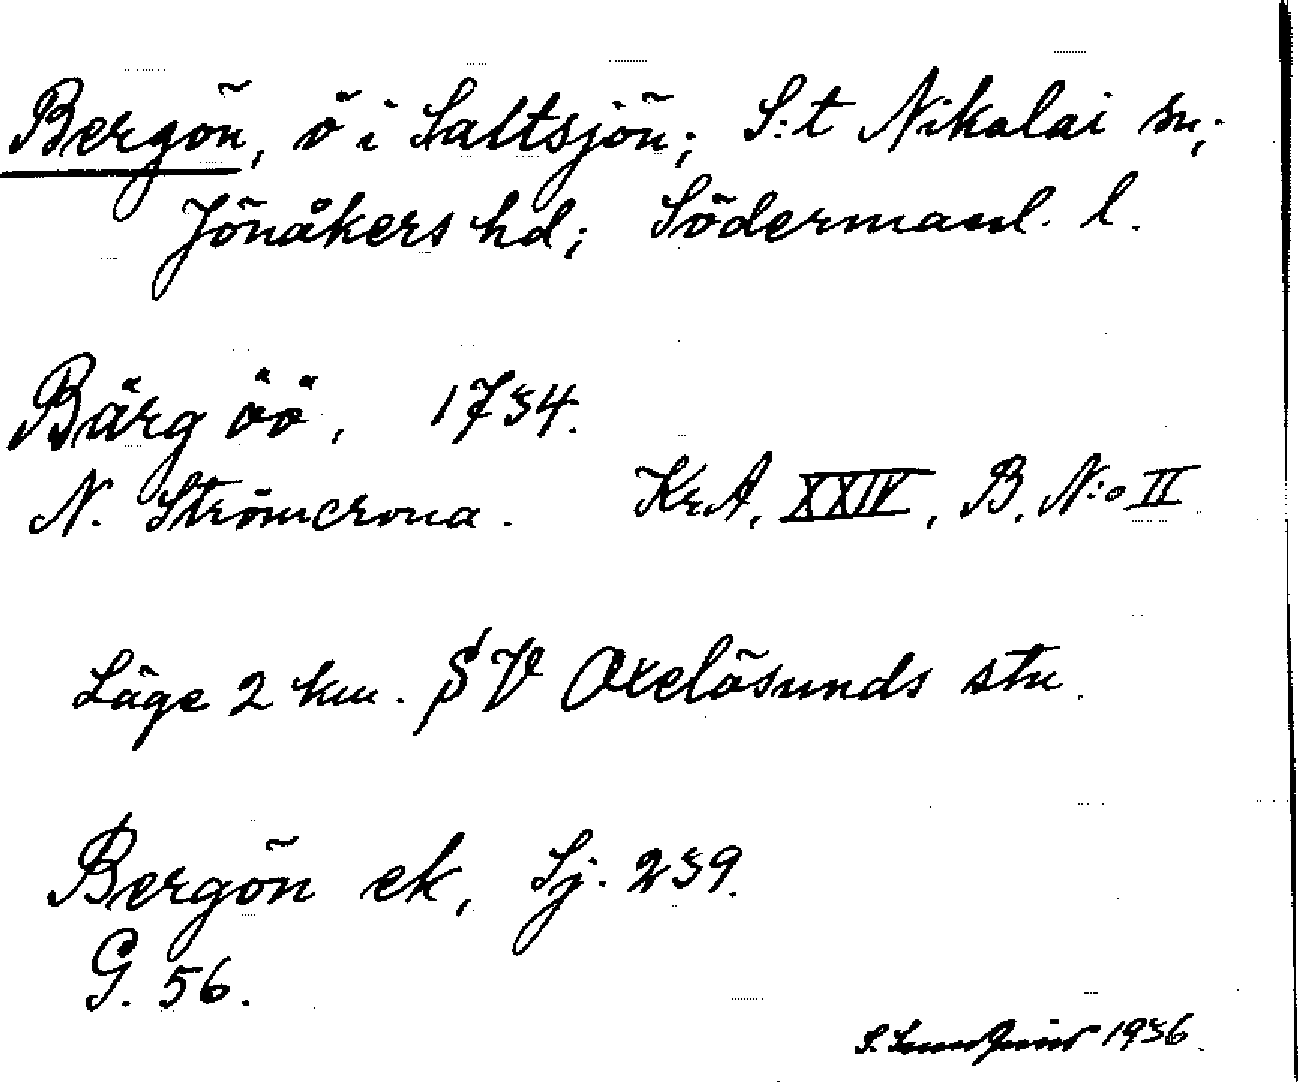 Bergön, ö i Saltsjön; S:t Nikolai sn;
Jönåkers hd; Södermanl. l.
Bärg öö, 1734.
N. Strömcrona. Kr.A. XXIV, B. N:o II
Läge 2 km. SV Oxelösunds stn.
Bergön ek, Sj. 239.
G. 56.
S. 1936.